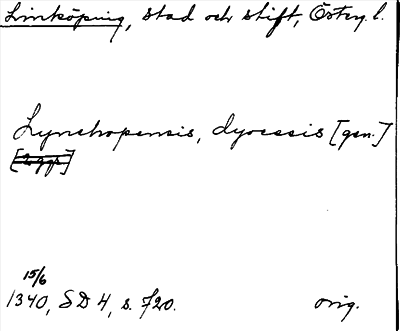 Linköping, stad och stift, Östg. l.
Lynchopensis, dyocesis [gen.]
15/6
1340, SD 4, s. 720. orig.